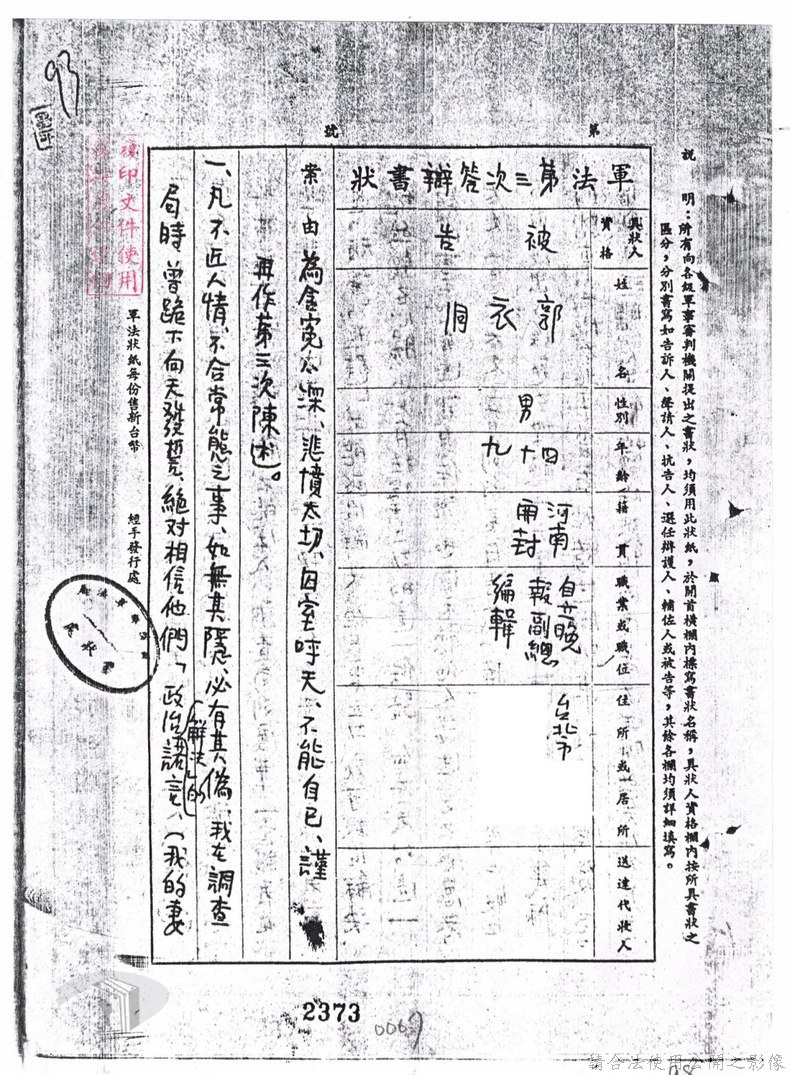 說　明：所有向各級軍事審判機關提出之書狀，均須用此狀紙，於開首橫欄內標寫書狀名稱，具狀人資格欄內按所具書狀之
區分，分別書寫如告訴人、聲請人、抗告人、選任辯護人、輔佐人或被告等，其餘各欄均須詳細填寫。
第　號
軍法第三次答辯書狀
具狀人
資格
姓名
性別
年齡
籍貫
職業或職位
住所或居所
送達代收人
被告
郭衣洞
男
四十九
河南
開封
自立晚
報副總
編輯
台北市
案由　為含冤太深、悲憤太切、囚室呼天、不能自已、謹
再作第三次陳述。
一、凡不近人情、不合常態之事、如無其隱、必有其偽、我在調查
局時曾跪下向天發誓、絕对相信他們「政治解決」的諾言、（我的妻
軍法狀紙每份售新台幣　經手發行處
複印文件使用
93
2373
0007
請合法使用公開之影像